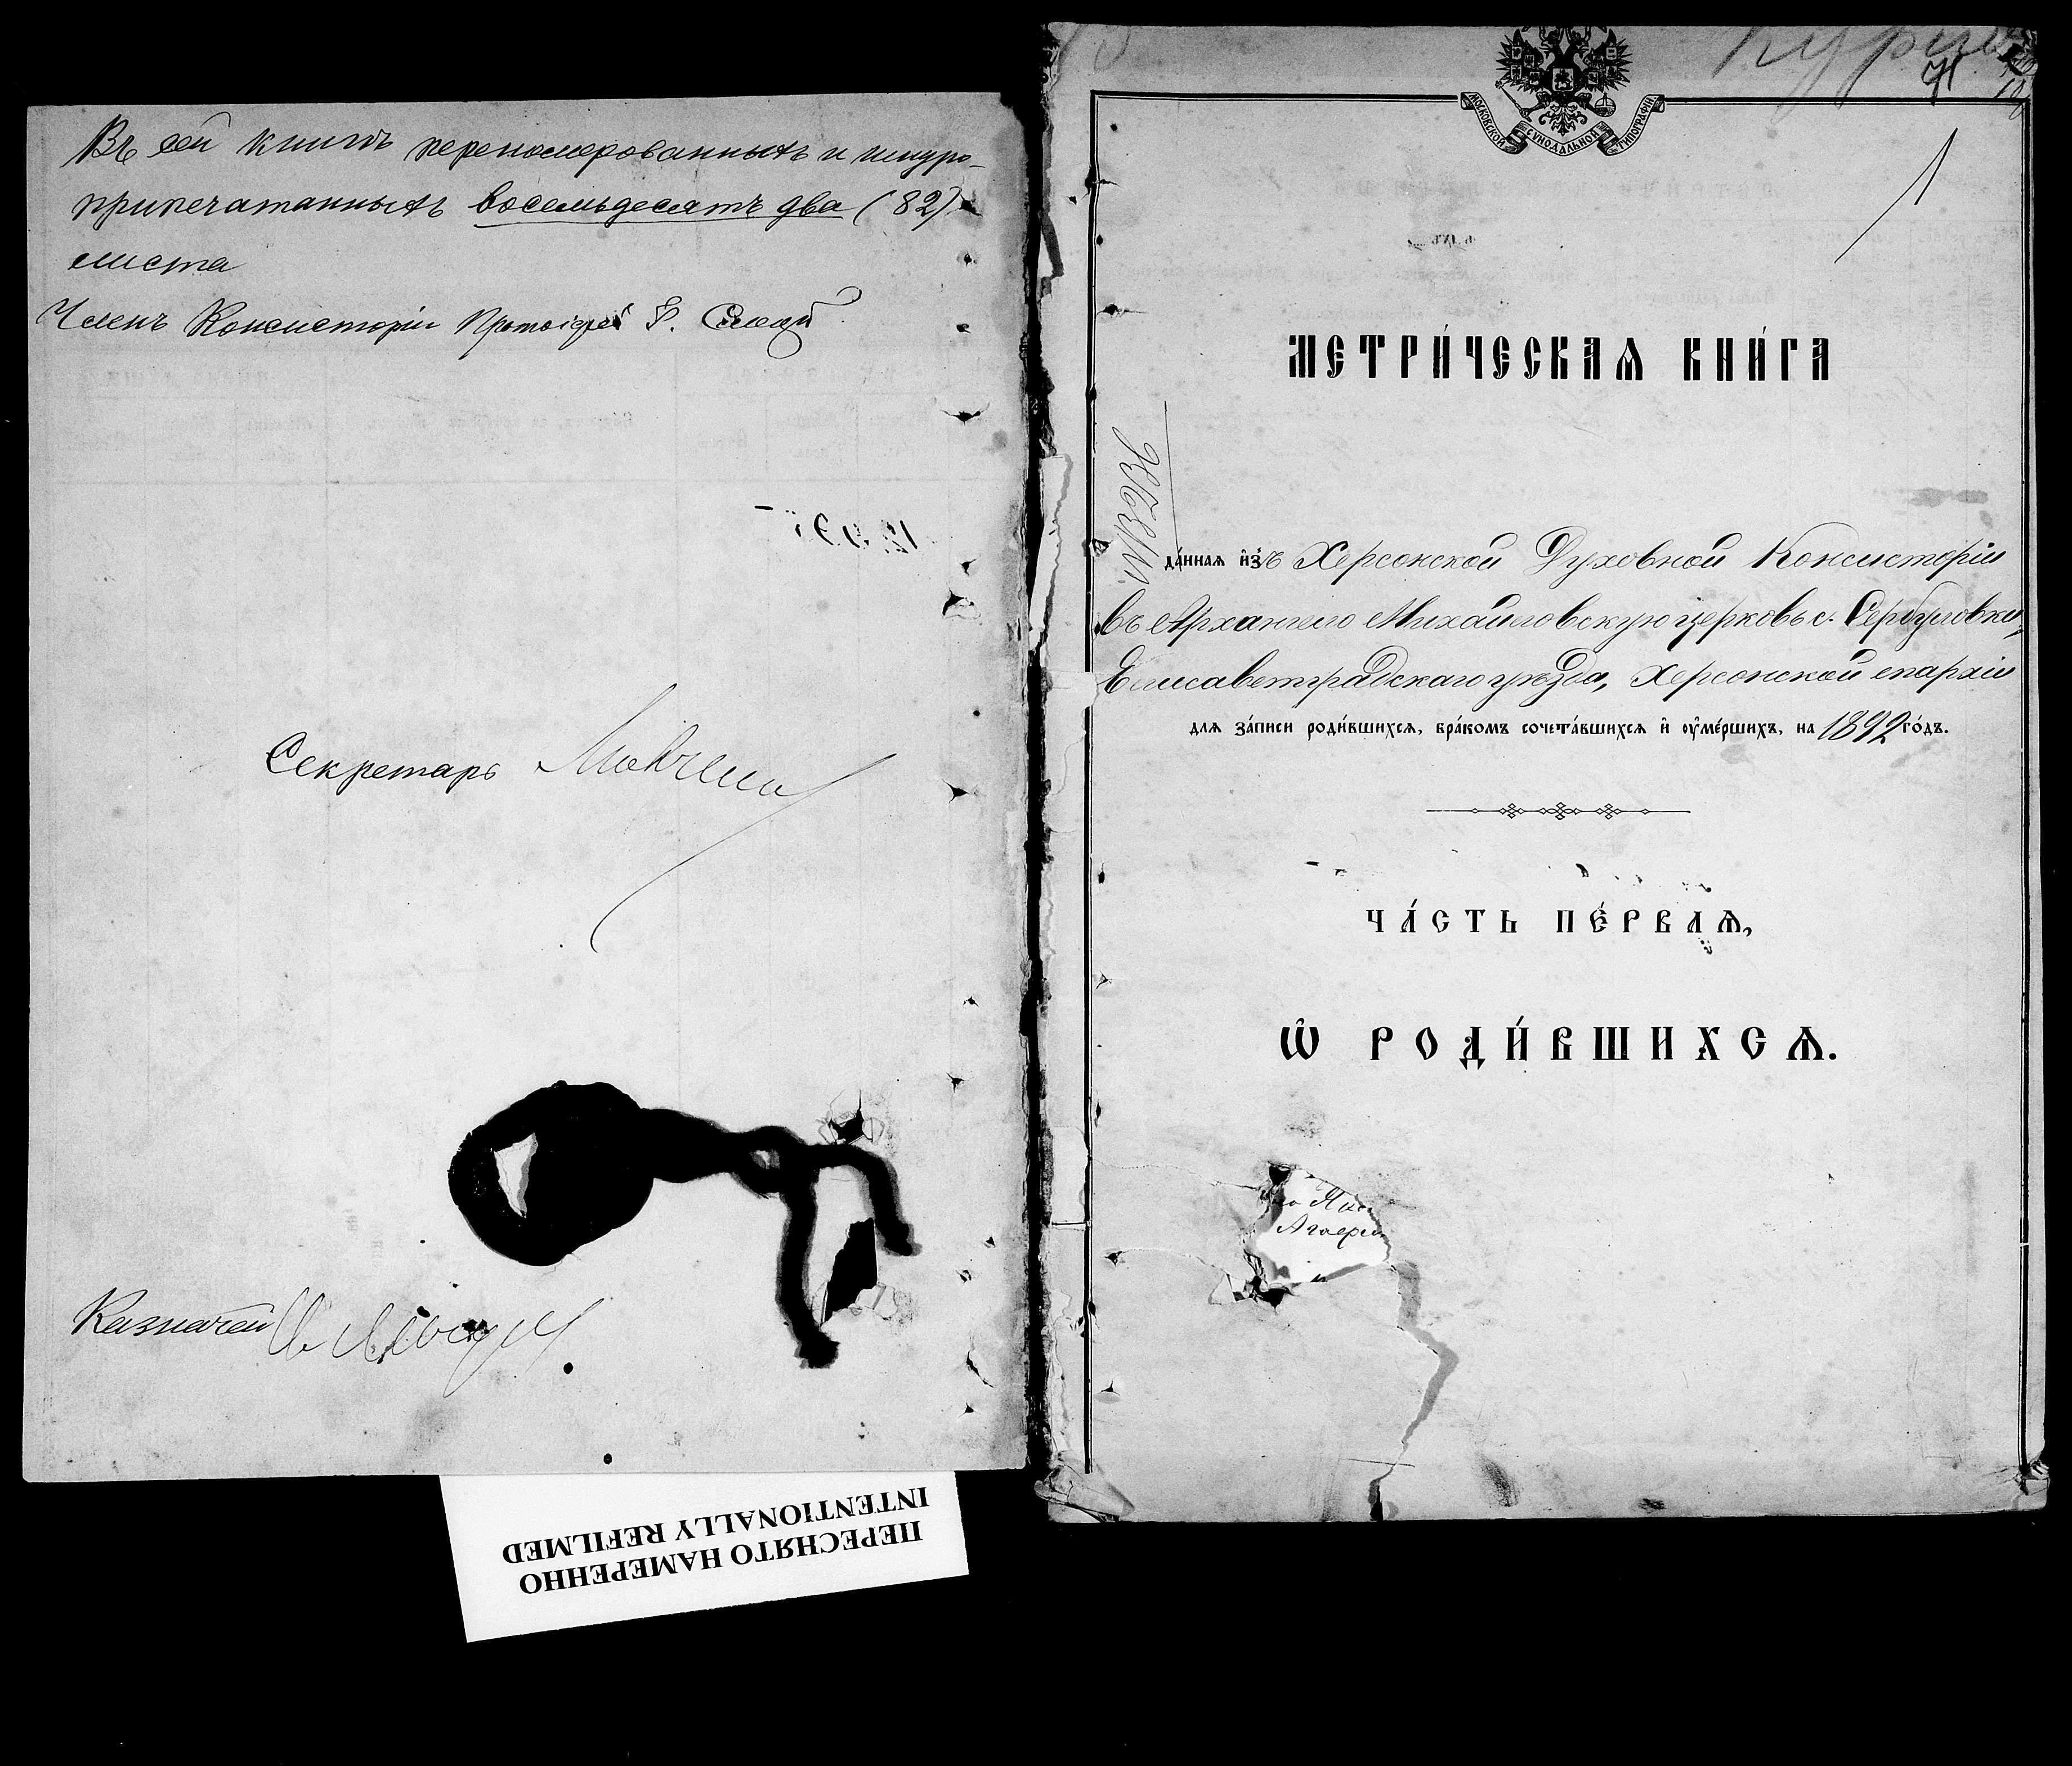 Въ сей книгѣ перенумерованныхъ и шнуро-
припечатанныхъ восемьдесятъ два (82)
листа
Членъ Консисторіи Протоіерей
Секретарь
Казначей
ПЕРЕСНЯТО НАМЕРЕННО
INTENTIONALLY REFILMED
МОСКОВСКОЙ СѴНОДАЛЬНОЙ ТИПОГРАФІИ.
71
1
МЕТРИ́ЧЕСКАѦ КНИ́ГА
да́ннаѧ и҆зъ Херсонской Духовной Консисторіи
въ Архангело Михайловскую церковь с. Сербуловки,
Елисаветградскаго уѣзда, Херсонской епархіи
для за́писи роди́вшихсѧ, бра́комъ сочета́вшихсѧ и҆ ᲂу҆ме́ршихъ, на 1892 го́дъ.
ЧА́СТЬ ПЕ́РВАѦ,
Ѡ҆ РОДИ́ВШИХСѦ.